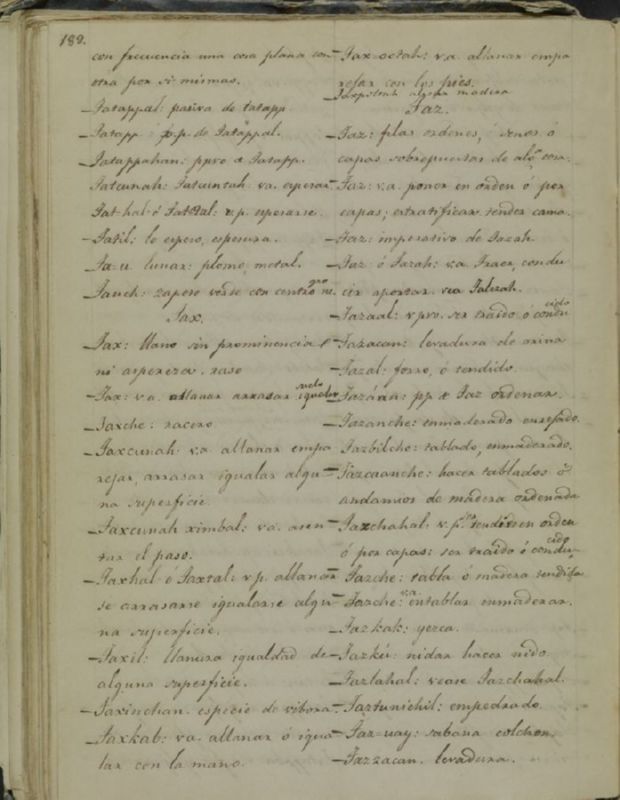 189.
con frecuencia una cosa plana con
otra por si mismas.
Tatappal: pasiva de tatapp
Tatapp: p.p. de Tatappal.
Tatappahan: ppvo de Tatapp.
Tatcunah: Tatcuntah va. espesar.
Tat-hal ó Tattal: v.p. espesarse.
Tatil: lo espeso, espesura.
Ta-u lunar: plomo, metal.
Tauch: zapote verde con centro
Tax.
Tax: llano sin prominencia
ni aspereza. raso
Tax: v.a. allanar arrasar igualar
Taxche: racero
Taxcunah: v.a. allanar empa
rejar, arrasar igualar algu
na superficie.
Taxcunah ximbal: v.a. asen
tar el paso.
Taxhal ó Taxtal: v.p. allanar
se arrasarse igualarse algu
na superficie.
Taxil: llanura igualdad de
alguna superficie.
Taxinchan. especie de vibora
Taxkab: v.a. allanar ó igua
lar con la mano.
Tax-octah: v.a. allanar empa
rejar con los pies.
alguna madera
Taz.
Taz: filas ordenes, ó senos ó
capas sobrepuestas de alg.ª cosa.
Taz: v.a. poner en orden ó por
capas; estratificar. tender cama.
Taz: imperativo de Tazah.
Taz ó Tazah: v.a. Traer, condu
cir aportar. vea Talzah.
Tazaal: v.pvo. ser traido ó condu
cido
Tazacan: levadura de arina
Tazal: forro, ó tendido.
Tazáan: pp de Taz ordenar.
Tazanche: enmaderado enrejado.
Tazbilche: tablado, enmaderado.
Tazcaanche: hacer tablados ó
andamios de madera ordenada
Tazchahal: v.p. tenderse en orden
ó por capas: ser traido ó condu
cido
Tazche: tabla ó madera tendida
Tazche: v.a. entablar enmaderar.
Taz kak: yezca.
Tazkú: nidar hacer nido
Tazlahal: vease Tazchahal.
Taztunichil: empedrado.
Taz-uay: sabana colchon.
Tazzacan. levadura.